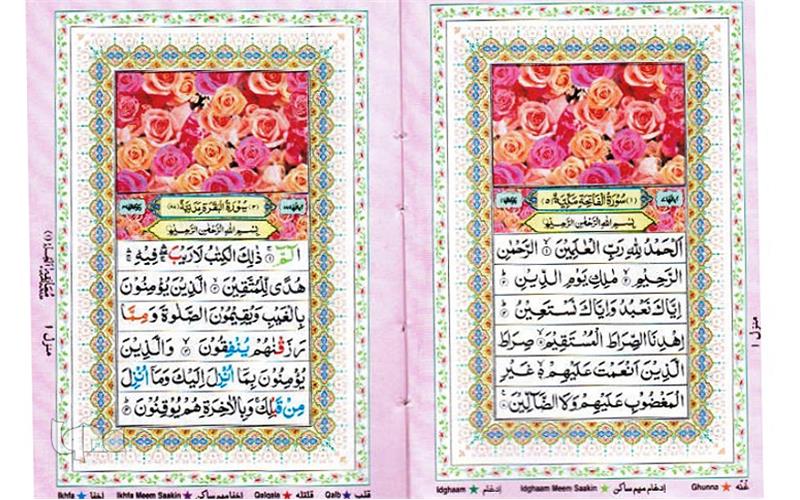 سُوْرَةُ الْفَاتِحَةِ مَكِّيَّةٌ
بِسْمِ اللّٰهِ الرَّحْمٰنِ الرَّحِيْمِ
اَلْحَمْدُ لِلّٰهِ رَبِّ الْعٰلَمِيْنَ ۙ الرَّحْمٰنِ
الرَّحِيْمِ ۙ مٰلِكِ يَوْمِ الدِّيْنِ ؕ
اِيَّاكَ نَعْبُدُ وَاِيَّاكَ نَسْتَعِيْنُ ؕ
اِهْدِنَا الصِّرَاطَ الْمُسْتَقِيْمَ ۙ صِرَاطَ
الَّذِيْنَ اَنْعَمْتَ عَلَيْهِمْ ۙ غَيْرِ
الْمَغْضُوْبِ عَلَيْهِمْ وَلَا الضَّآلِّيْنَ
منزل ١
Idghaam ادغام Idghaam Meem Saakin ادغام میم ساکن Ghunna غنّه
سُوْرَةُ الْبَقَرَةِ مَدَنِيَّةٌ
بِسْمِ اللّٰهِ الرَّحْمٰنِ الرَّحِيْمِ
الٓمّٓ ۚ ذٰلِكَ الْكِتٰبُ لَا رَيْبَ ۛ فِيْهِ ۛ
هُدًى لِّلْمُتَّقِيْنَ ۙ الَّذِيْنَ يُؤْمِنُوْنَ
بِالْغَيْبِ وَيُقِيْمُوْنَ الصَّلٰوةَ وَمِمَّا
رَزَقْنٰهُمْ يُنْفِقُوْنَ ۙ وَالَّذِيْنَ
يُؤْمِنُوْنَ بِمَاۤ اُنْزِلَ اِلَيْكَ وَمَاۤ اُنْزِلَ
مِنْ قَبْلِكَ ۚ وَبِالْاٰخِرَةِ هُمْ يُوْقِنُوْنَ ؕ
منزل ١
Ikhfa اخفا Ikhfa Meem Saakin اخفا میم ساکن Qalqala قلقله Qalb قلب